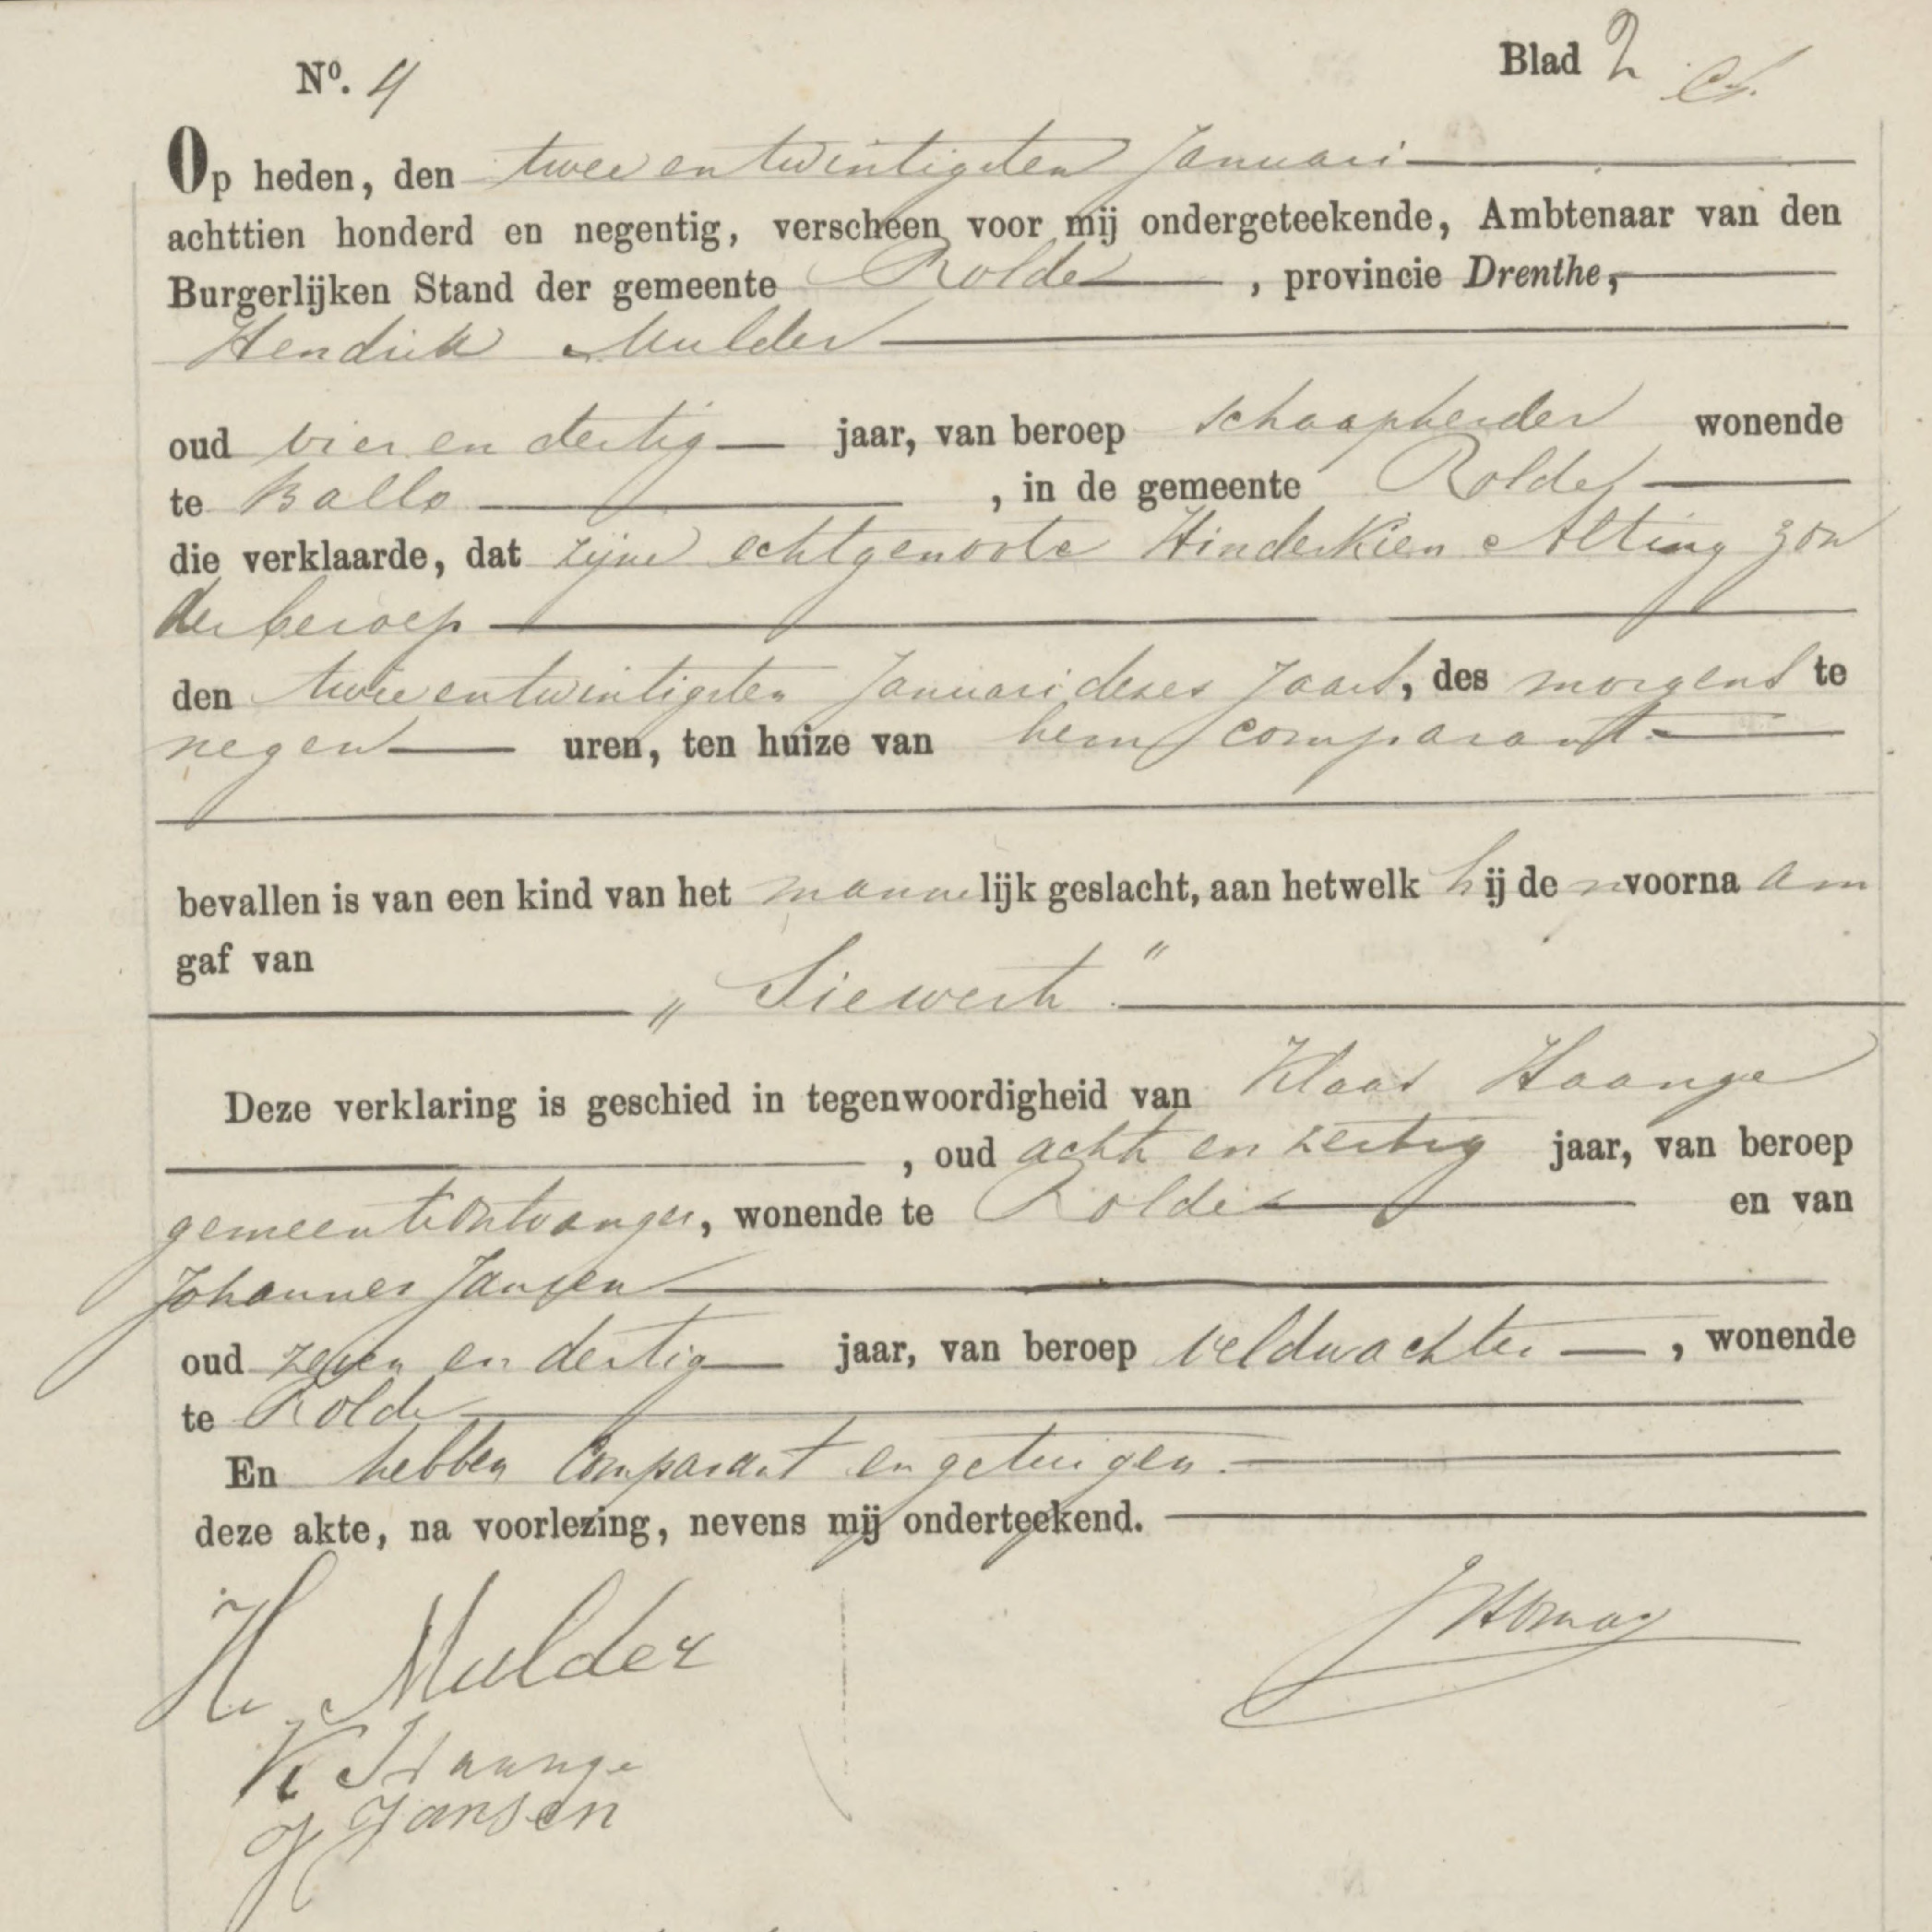 Nº. 4
Blad 2
Op heden, den twee en twintigsten Januari
achttien honderd en negentig, verscheen voor mij ondergeteekende, Ambtenaar van den
Burgerlijken Stand der gemeente Rolde, provincie Drenthe,
Hendrik Mulder
oud vier en dertig jaar, van beroep schaapherder wonende
te Ballo, in de gemeente Rolde
die verklaarde, dat zijne echtgenoote Hinderkien Alting zon
der beroep
den twee en twintigsten Januari dezes jaars, des morgens te
negen uren, ten huize van hem comparant
bevallen is van een kind van het mannelijk geslacht, aan hetwelk hij de n voorna am
gaf van
„Siewert"
Deze verklaring is geschied in tegenwoordigheid van Klaas Haange
, oud acht en zestig jaar, van beroep
gemeenteontvanger, wonende te Rolde en van
Johannes Jansen
oud zeven en dertig jaar, van beroep veldwachter, wonende
te Rolde
En hebben Comparant en getuigen.
deze akte, na voorlezing, nevens mij onderteekend.
H Mulder
K Haange
J Jansen